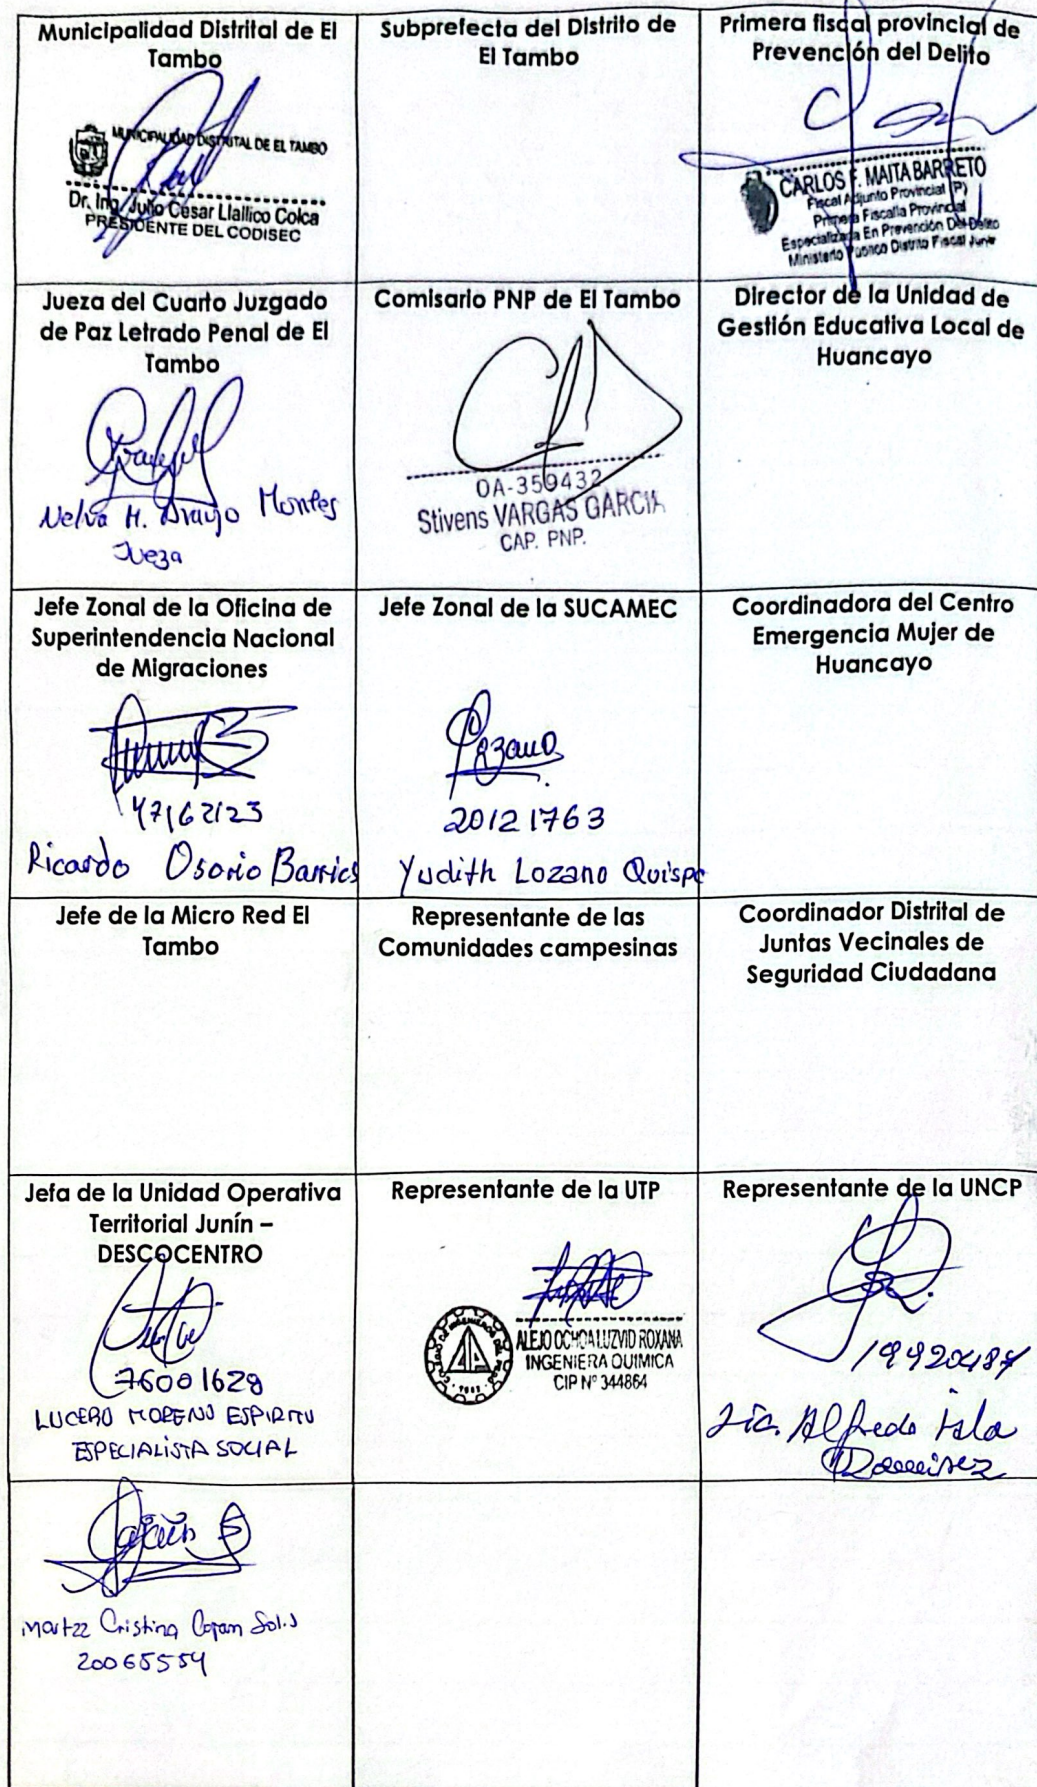 Municipalidad Distrital de El
Tambo
MUNICIPALIDAD DISTRITAL DE EL TAMBO
Dr. Ing. Julio Cesar Llallico Colca
PRESIDENTE DEL CODISEC
Subprefecta del Distrito de
El Tambo
Primera fiscal provincial de
Prevención del Delito
CARLOS F. MAITA BARRETO
Fiscal Adjunto Provincial (P)
Primera Fiscalía Provincial
Especializada En Prevención Del Delito
Ministerio Público Distrito Fiscal Junín
Jueza del Cuarto Juzgado
de Paz Letrado Penal de El
Tambo
Nelva H. Araujo Montes
Jueza
Comisario PNP de El Tambo
OA-359432
Stivens VARGAS GARCIA
CAP. PNP.
Director de la Unidad de
Gestión Educativa Local de
Huancayo
Jefe Zonal de la Oficina de
Superintendencia Nacional
de Migraciones
47162123
Ricardo Osorio Barrios
Jefe Zonal de la SUCAMEC
Lozano
20121763
Yudith Lozano Quispe
Coordinadora del Centro
Emergencia Mujer de
Huancayo
Jefe de la Micro Red El
Tambo
Representante de las
Comunidades campesinas
Coordinador Distrital de
Juntas Vecinales de
Seguridad Ciudadana
Jefa de la Unidad Operativa
Territorial Junín –
DESCOCENTRO
76001628
LUCERO MORENO ESPIRITU
ESPECIALISTA SOCIAL
Representante de la UTP
ALEJO OCHOA LUZVID ROXANA
INGENIERA QUIMICA
CIP N° 344864
Representante de la UNCP
19920487
Lic. Alfredo Isla
Ramirez
Cristina
20065554